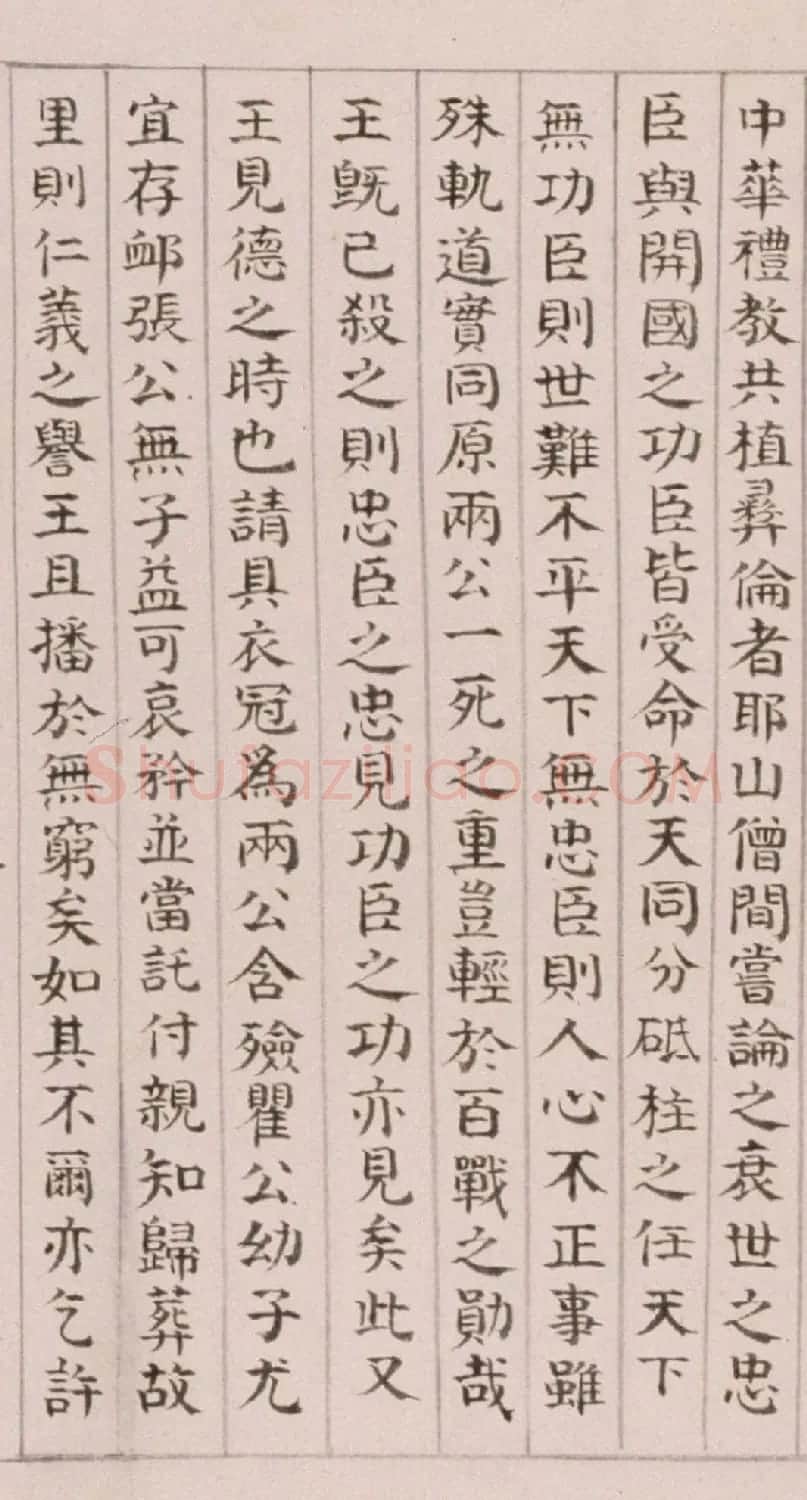 中華禮教共植彞倫者耶山僧間嘗論之衰世之忠
臣與開國之功臣皆受命於天同分砥柱之任天下
無功臣則世難不平天下無忠臣則人心不正事雖
殊軌道實同原兩公一死之重豈輕於百戰之勛哉
王旣已殺之則忠臣之忠見功臣之功亦見矣此又
王見德之時也請具衣冠爲兩公含殮瞿公幼子尤
宜存卹張公無子益可哀矜並當託付親知歸葬故
里則仁義之譽王且播於無窮矣如其不爾亦乞許
Shufaziliao.COM